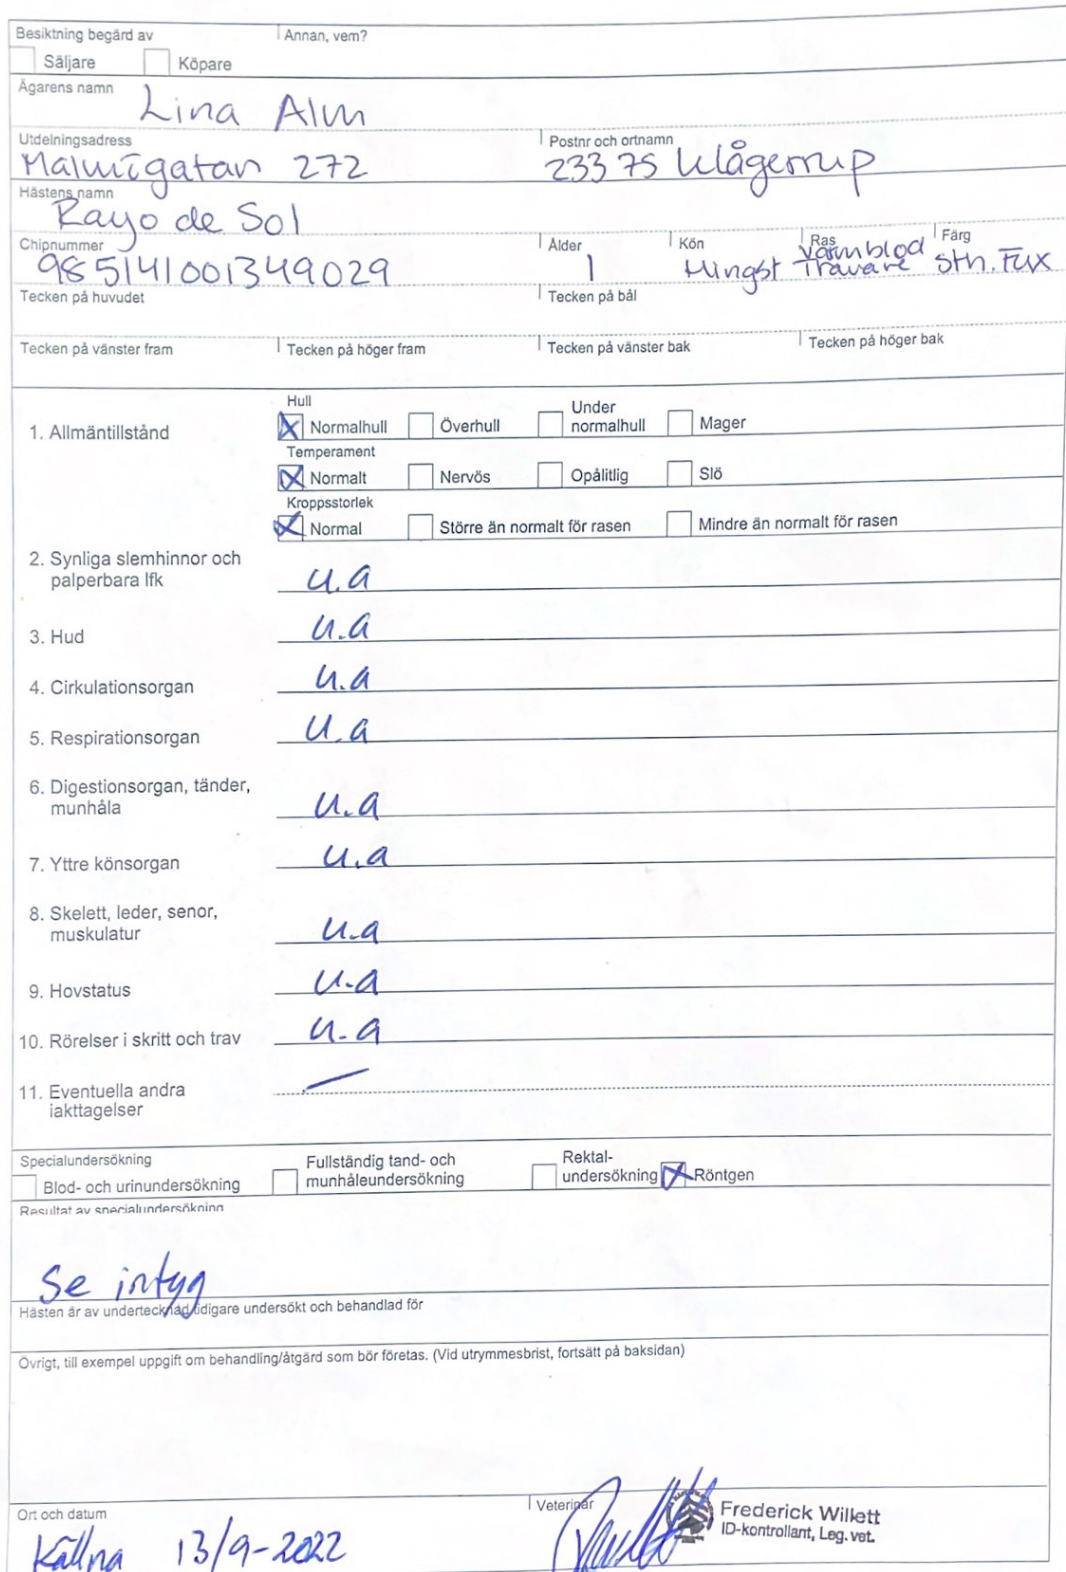 Besiktning begärd av Annan, vem?
Säljare Köpare
Ägarens namn
Lina Alm
Utdelningsadress Postnr och ortnamn
272 233 75 Klågerup
Hästens namn
Rayo de Sol
Chipnummer Ålder Kön Ras Färg
985141001349029 1 Hingst Varmblod Travare sth. Fux
Tecken på huvudet Tecken på bål
Tecken på vänster fram Tecken på höger fram Tecken på vänster bak Tecken på höger bak
Hull
1. Allmäntillstånd Normalhull Överhull Under normalhull Mager
Temperament
Normalt Nervös Opålitlig Slö
Kroppsstorlek
Normal Större än normalt för rasen Mindre än normalt för rasen
2. Synliga slemhinnor och
palperbara lfk u.a
3. Hud u.a
4. Cirkulationsorgan u.a
5. Respirationsorgan u.a
6. Digestionsorgan, tänder,
munhåla u.a
7. Yttre könsorgan u.a
8. Skelett, leder, senor,
muskulatur u.a
9. Hovstatus u.a
10. Rörelser i skritt och trav u.a
11. Eventuella andra
iakttagelser
Specialundersökning
Blod- och urinundersökning Fullständig tand- och munhåleundersökning Rektal-undersökning Röntgen
Resultat av specialundersökning
Se intyg
Hästen är av undertecknad tidigare undersökt och behandlad för
Övrigt, till exempel uppgift om behandling/åtgärd som bör företas. (Vid utrymmesbrist, fortsätt på baksidan)
Ort och datum Veterinär
Källna 13/9-2022 Frederick Willett
ID-kontrollant, Leg. vet.